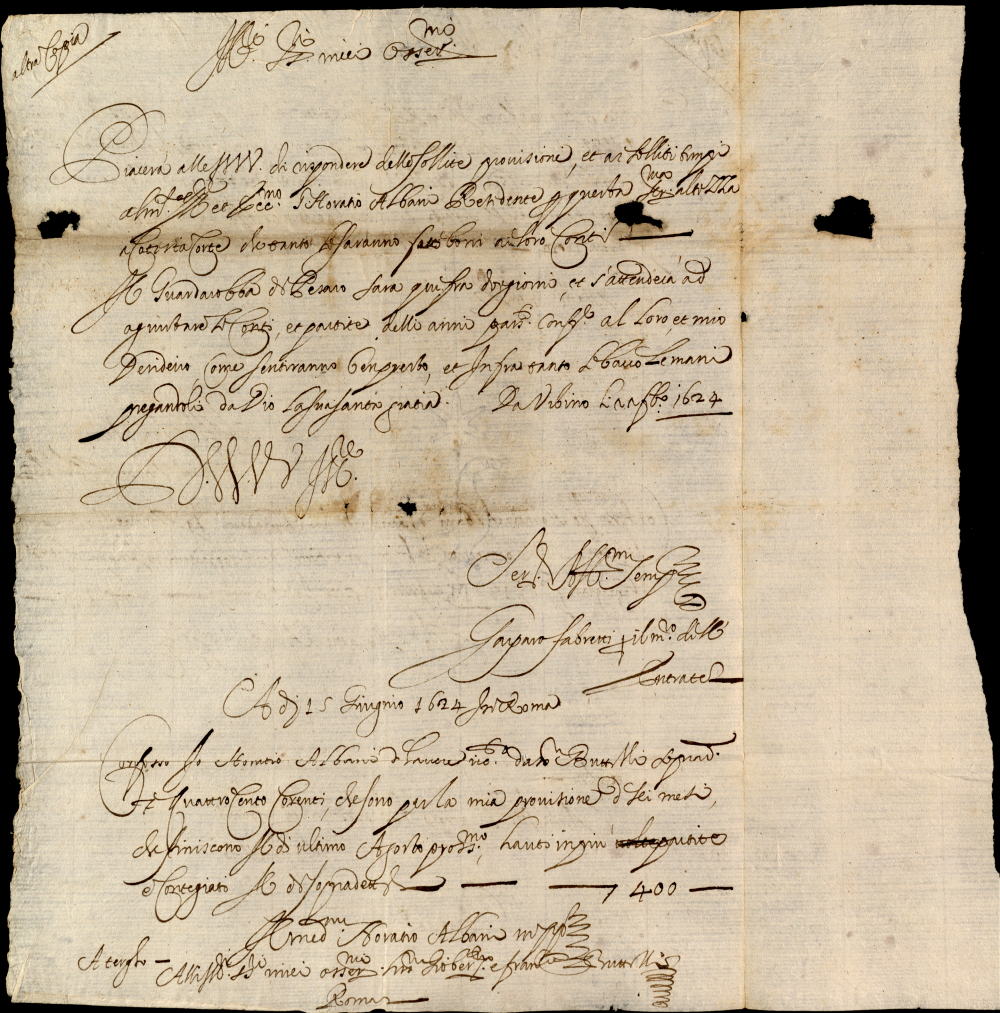 altra Coppia
Ill.ri S.ri miei Osser.mo
Piacerà alle SS.VV. di rispondere delle sollite provisione, et ai solliti tempi
all Ill.re et Ecc.mo S. Horatio Albani Residente p questa Ser.ma altezza
a cotesta Corte che tanto le saranno fatti boni ai loro Conti
Il Guardarobba di Pesaro sara qui fra doi giorni, et s'attenderà ad
agiustare le Conti, et partite delli anni pass.ti conf.e al loro, et mio
Desiderio, come sentiranno ben presto, et Infra tanto le bacio le mani
pregandoli da Dio la sua santa gratia. Da Urbino li 1624
D. SS. VV. Ill.
Ser. Aff.mo Semp
Gasparo Fabretti p il m.ro delle
Entrate
A dì 15 Giugno 1624 In Roma
Confesso Io Horatio Albani d'havere ric.to dalli SS.ri Buttelli
∇ Quattrocento Correnti, che sono per la mia provisione di sei mesi,
che finiscono il dì ultimo Agosto pross.mo, hauti in più partite
e Conteggiato il dì sopradetto 400
Horatio Albani m. pp.
A tergo — Alli SS.ri miei osser.mi Giober.to e fran.co Buttelli
Roma